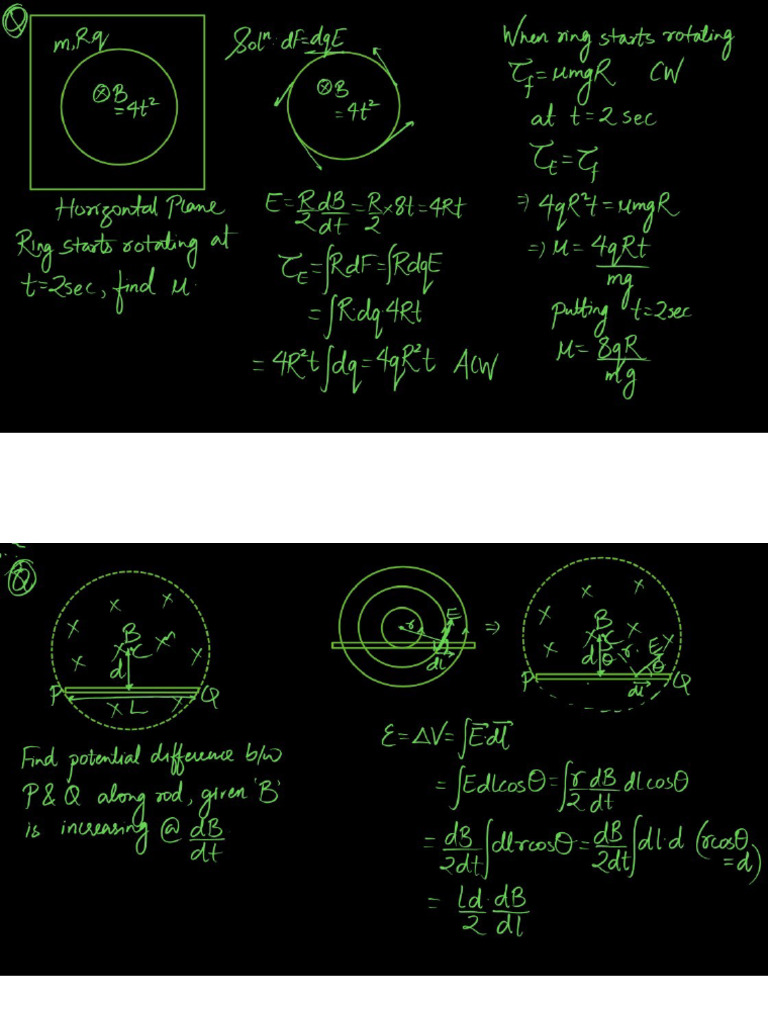 Q
m,Rq
⊗B
=4t²
Horizontal Plane
Ring starts rotating at
t=2sec, find μ.
Solⁿ: dF=dqE
⊗B
=4t²
E=R/2 dB/dt=R/2×8t=4Rt
τ_E=∫RdF=∫RdqE
=∫R.dq4Rt
=4R²t∫dq=4qR²t ACW
When ring starts rotating
τ_f=μmgR CW
at t=2sec
τ_E=τ_f
⇒4qR²t=μmgR
⇒μ=4qRt/mg
putting t=2sec
μ=8qR/mg
Q
B
d
P
Q
L
Find potential difference b/w
P & Q along rod, given 'B'
is increasing @ dB/dt
r
E
dl
⇒
B
d
θ
r
E
θ
P
dl
Q
ε=ΔV=∫E.dl
=∫Edlcosθ=∫r/2 dB/dt dlcosθ
=dB/2dt∫dlrcosθ=dB/2dt∫dl.d (rcosθ
=d)
=Ld/2.dB/dl